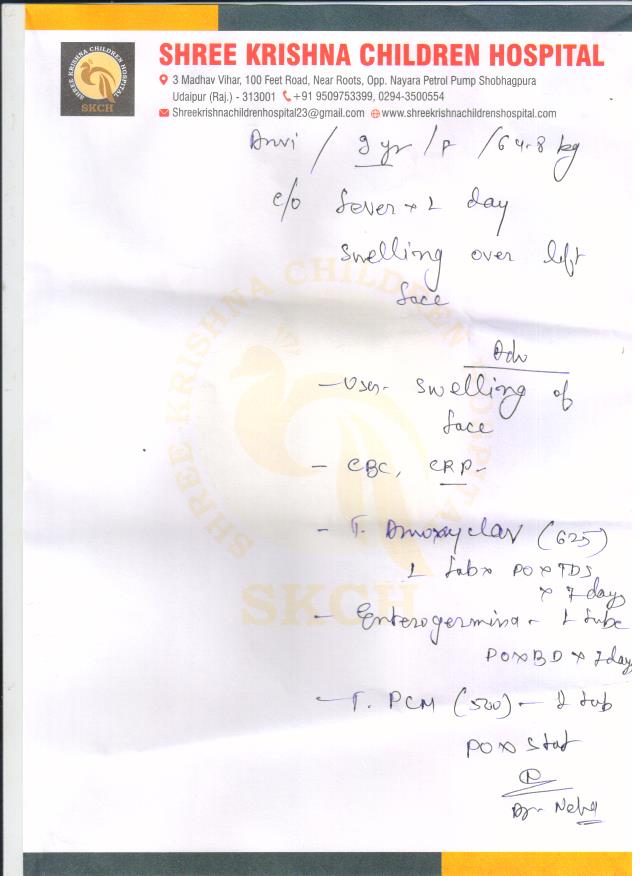 SHREE KRISHNA CHILDREN HOSPITAL
SKCH
SHREE KRISHNA CHILDREN HOSPITAL
3 Madhav Vihar, 100 Feet Road, Near Roots, Opp. Nayara Petrol Pump Shobhagpura
Udaipur (Raj.) - 313001 +91 9509753399, 0294-3500554
Shreekrishnachildrenhospital23@gmail.com www.shreekrishnachildrenshospital.com
Anvi / 9 yr / F / 64.8 kg
c/o fever x 1 day
swelling over left
face
SHREE KRISHNA CHILDREN HOSPITAL
SKCH
Adv
- USG- swelling of
face
- CBC, CRP-
- T. Amoxyclav (625)
1 tab x PO x TDS
x 7 days
- Enterogermina - 1 tube
PO x BD x 7 days
- T. PCM (500) - 1 tab
PO x stat
Dr. Neha